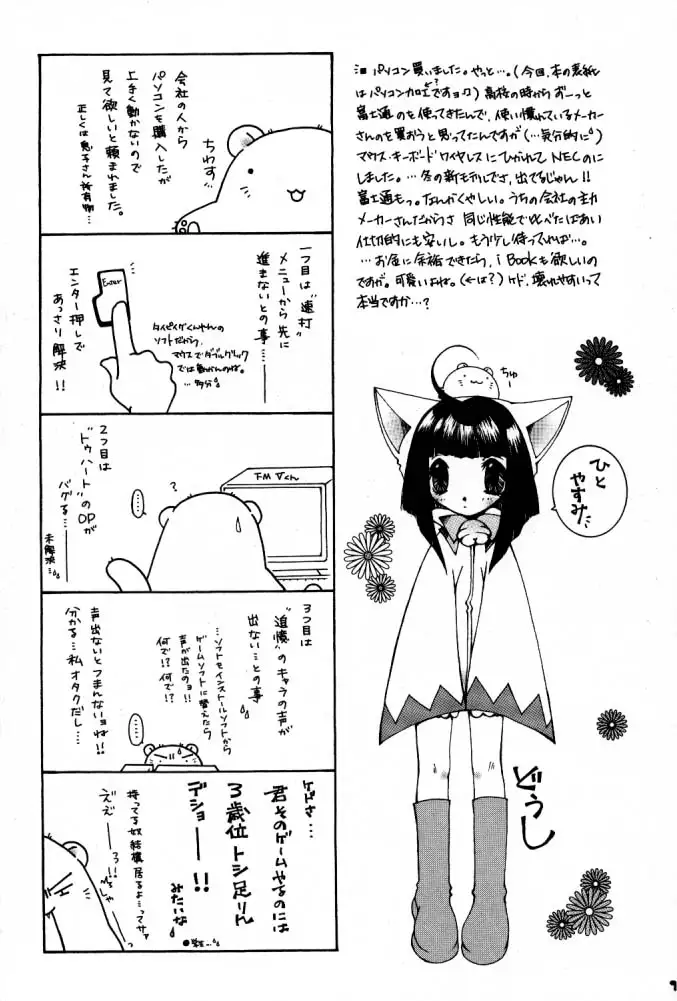 パソコン買いました。やっと…。(今回、本の表紙
はパソコン加工ですョ♪)高校の時からずーっと
富士通のを使ってきたんで、使い慣れているメーカー
さんのを買おうと思ってたんですが(…気分的に)
マウス・キーボードワイヤレスにひかれてNECのに
しました。…冬の新モデルでさ、出てるじゃん!!
富士通もっ。なんかくやしい。うちの会社の主力
メーカーさんだからさ 同じ性能で比べたばあい
仕切的にも安いし。もう少し待ってれば…。
…お金に余裕できたら、i Bookも欲しいの
ですが。可愛いよね。(←は?)ケド、壊れやすいって
本当ですか…?
会社の人から
パソコンを購入したが
上手く動かないので
見て欲しいと頼まれました。
正しくは息子さん所有物…
ちわす…
1つ目は"連打"
メニューから先に
進まないとの事…
Enter
タイピイグくんやんの
ソフトだから、
マウスでダブルクリック
では動かんのね。
…多分
エンター押しで
あっさり解決!!
2つ目は
"トゥハート"のOPが
バグる…
未解決…
……
?
FMVくん
3つ目は
"追憶"のキャラの声が
出ない…との事
…ソフトをインストールソフトから
ゲームソフトに替えたら
声が出たのョ!!
何で!?何で!?
声出ないとつまんないョね!!
分かる…私オタクだし…
……
ケドさ…
君そのゲームやるのには
3歳位トシ足りん
デショ——!!
みたいな
持ってる奴結構居るよ…ってサァ
ええ——っ!!
ちゅー
ひと
やすみ
どうし